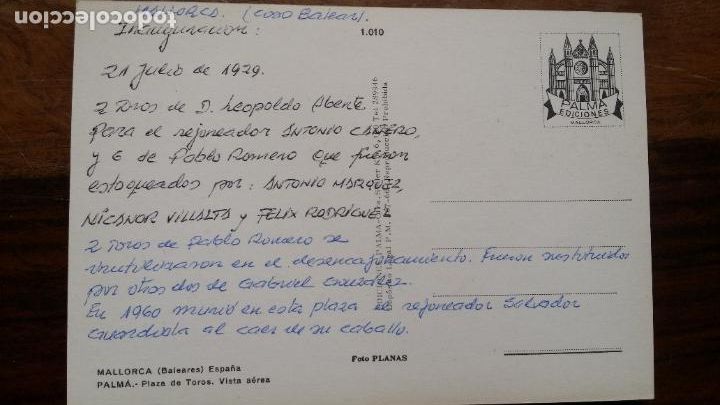 todocoleccion
MALLORCA. (Coso Balear).
Inauguracion:
1.010
21 Julio de 1929.
PALMA
EDICIONES
MALLORCA
2 Toros de D. Leopoldo Abente
Para el rejoneador ANTONIO CAÑERO,
y 6 de Pablo Romero que fueron
estoqueados por: ANTONIO MARQUEZ,
NICANOR VILLALTA y FELIX RODRIGUEZ
2 Toros de Pablo Romero se
inutilizaron en el desencajonamiento. Fueron sustituidos
por otros dos de Gabriel González.
En 1960 murió en esta plaza el rejoneador Salvador
Guardiola al caer de su caballo.
Foto PLANAS
MALLORCA (Baleares) España
PALMA.- Plaza de Toros. Vista aérea